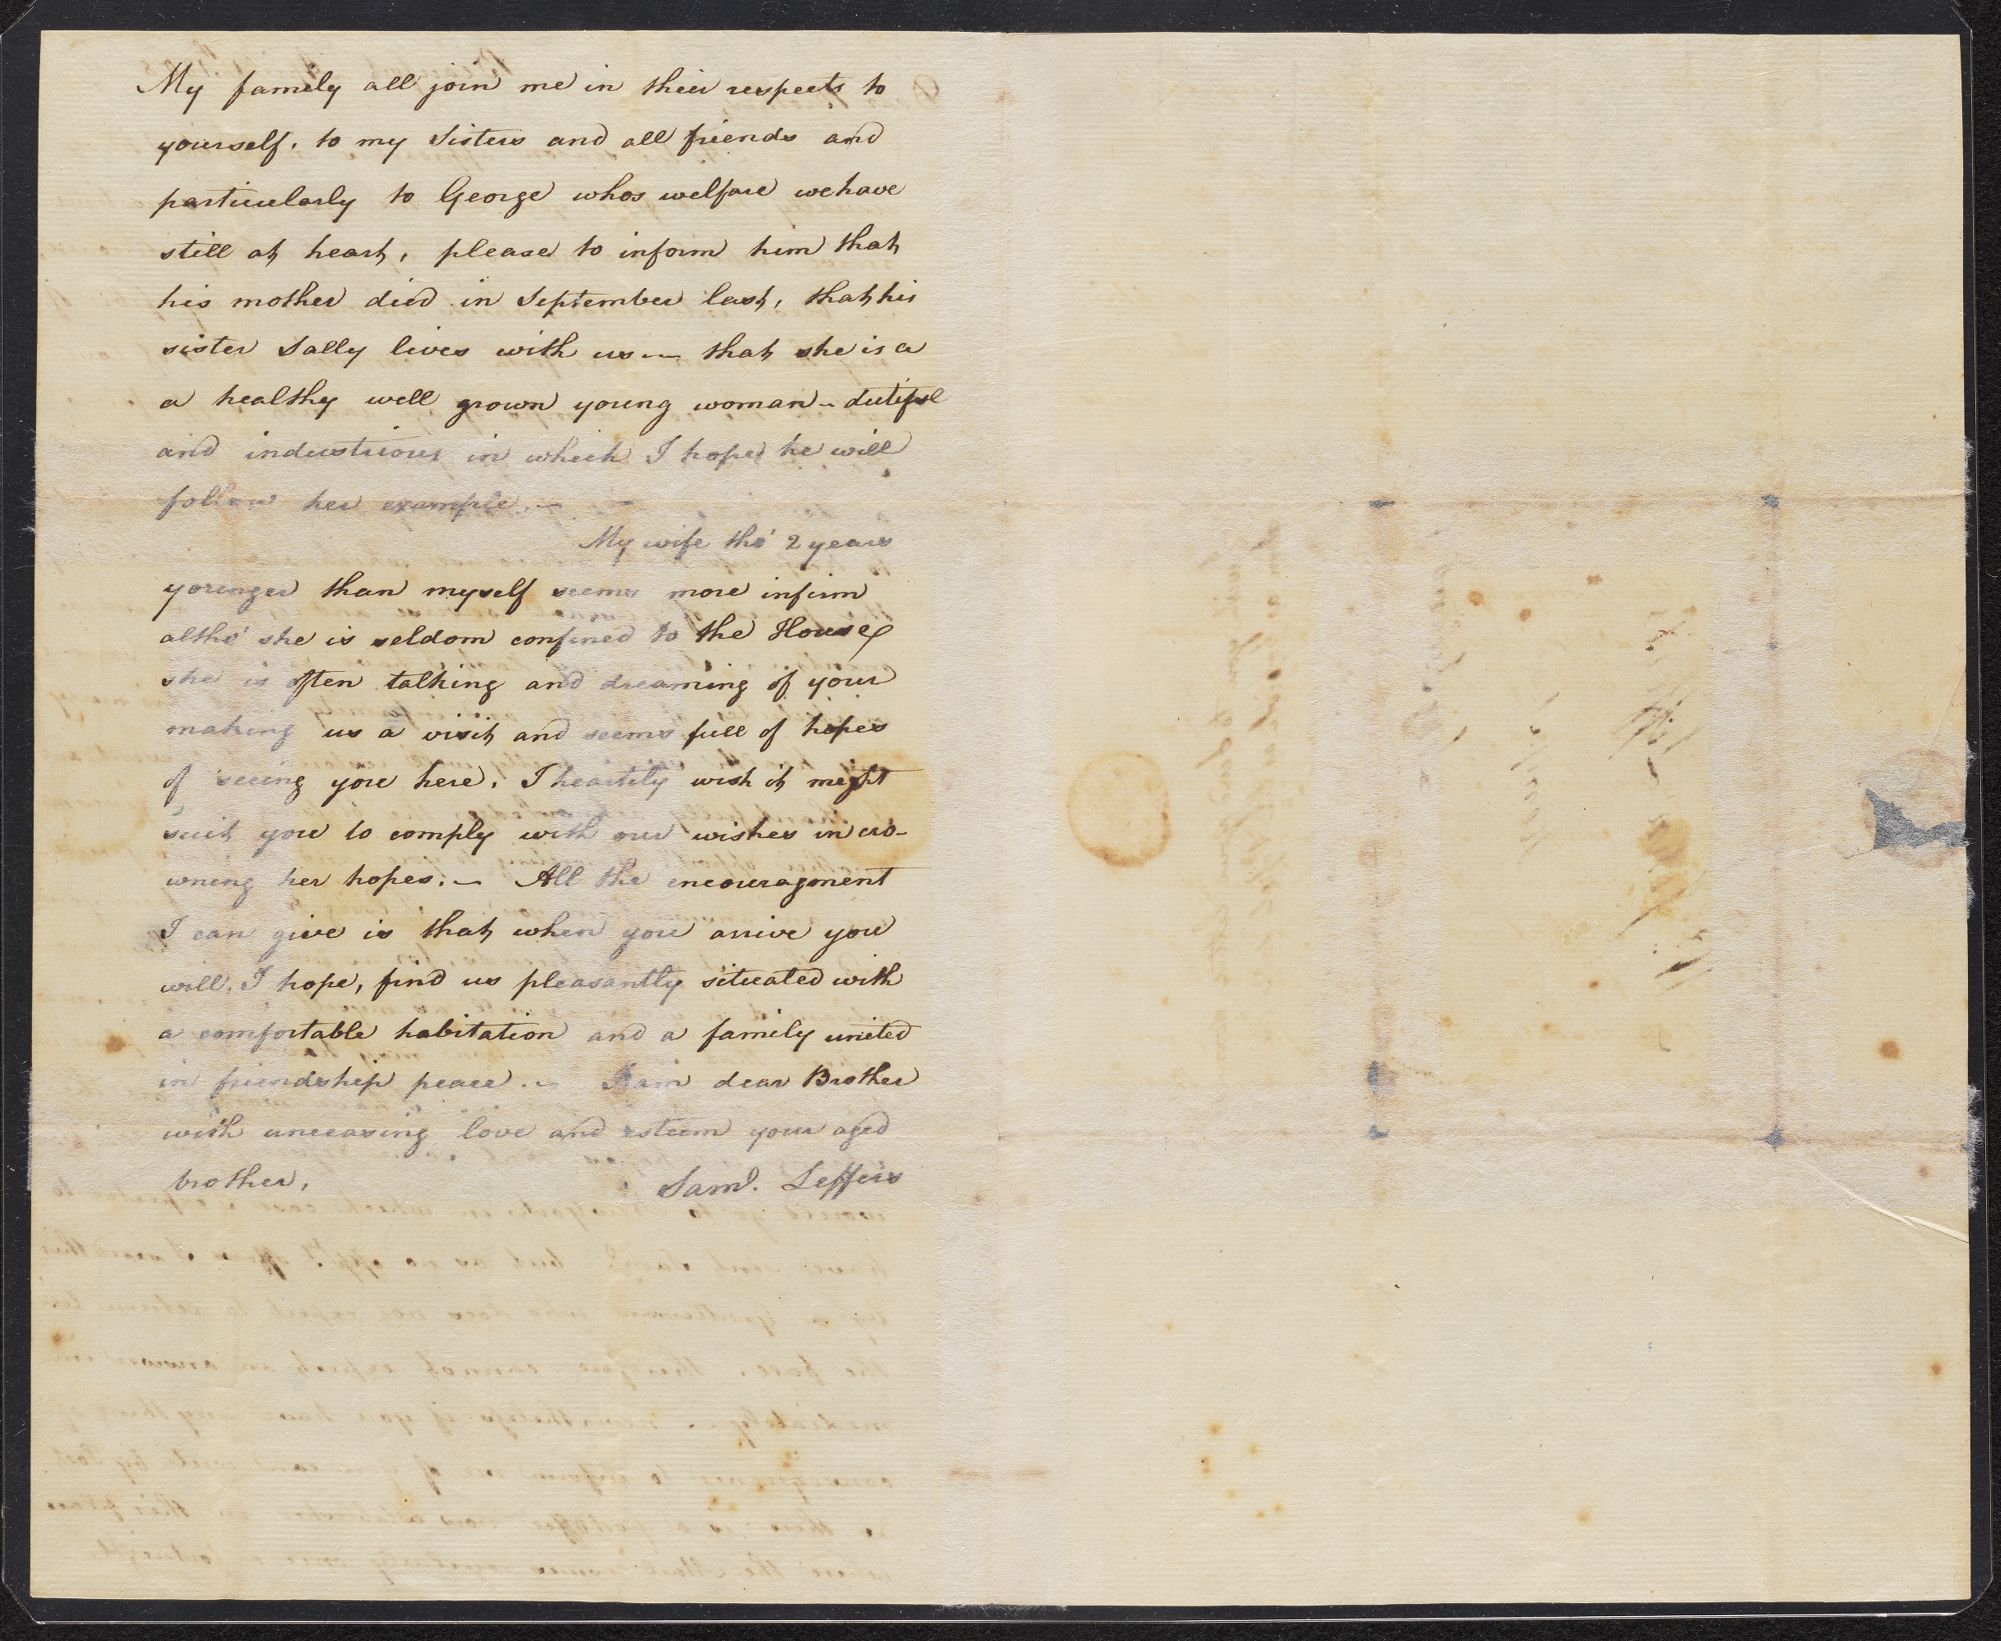 My family all join me in their respects to
yourself, to my Sisters and all friends and
particularly to George whos welfare we have
still at heart, please to inform him that
his mother died in September last, that his
sister Sally lives with us — that she is a
a healthy well grown young woman – dutiful
and industrious in which I hope he will
follow her example. —
My wife tho' 2 years
younger than myself seems more infirm
altho' she is seldom confined to the House
she is often talking and dreaming of your
making us a visit and seems full of hopes
of seeing you here. I heartily wish it might
suit you to comply with our wishes in cro-
wning her hopes. — All the encouragment
I can give is that when you arrive you
will, I hope, find us pleasantly situated with
a comfortable habitation and a family united
in friendship peace. — I am dear Brother
with unceasing love and esteem your aged
brother,
Saml. Leffers